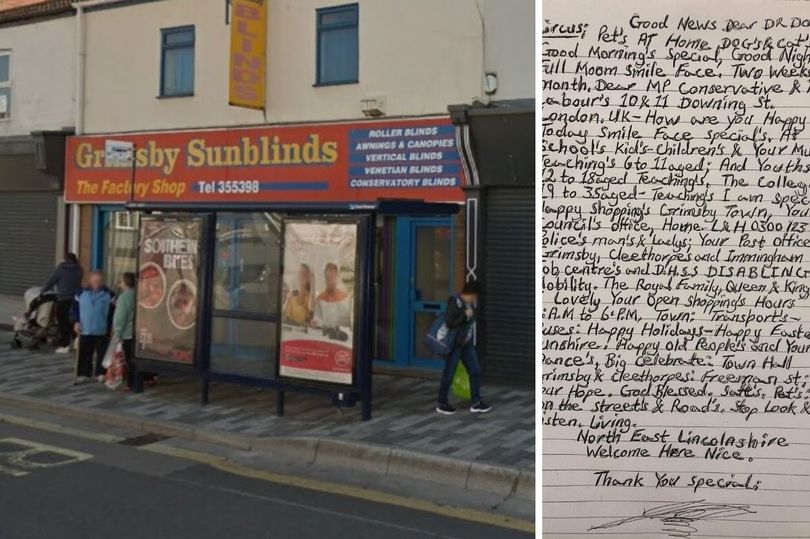 BLINDS
Grimsby Sunblinds
The Factory Shop Tel 355398
ROLLER BLINDS
AWNINGS & CANOPIES
VERTICAL BLINDS
VENETIAN BLINDS
CONSERVATORY BLINDS
SOUTHERN
BITES
Good News Dear DR Do
ircus; Pet's AT Home DOG's & Cat'
Good Morning's Special, Good Nigh
Full Moom Smile Face. Two Week
month, Dear MP Conservative &
abour's 10 & 11 Downing St.
ondon, UK - How are you Happy
Today Smile Face special's, At
School's Kid's - Children's & Your Mu
eaching's 6 to 11 aged: And Youths
12 to 18 aged Teaching's, The Colleg
19 to 35 aged - Teaching's I am spec
appy Shopping's Grimsby Town, You
ouncil's office, Home - L & H 0300 123
olice's man's & ladys; Your Post offic
Grimsby, Cleethorpes and Immingham
ob centre's and D.H.S.S DISABLINC
obility. The Royal Family, Queen & King
Lovely Your Open Shopping's Hours
A.M to 6.P.M, Town: Transport's -
uses: Happy Holidays - Happy Easte
unshire. Happy Old People's and Your
ance's, Big Celebrate: Town Hall
rimsby & Cleethorpes: Freeman st:
our Hope. God Blessed. Pet's:
on the street's & Road's. Stop Look &
isten. Living.
North East Lincolnshire
Welcome Here Nice.
Thank You special;